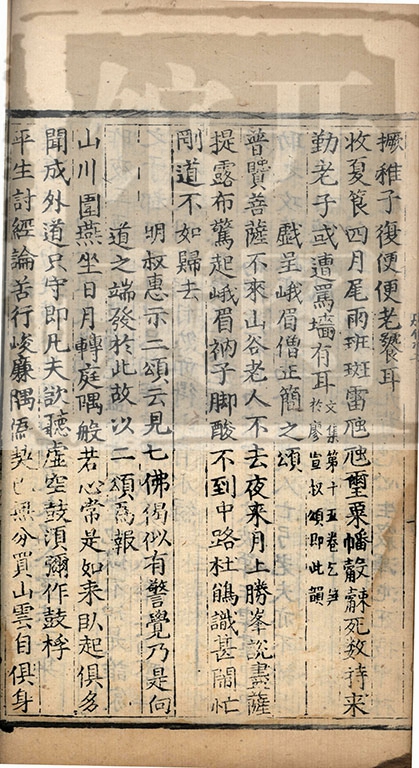 撅稚子復便便老饕耳
牧夏篌四月尾雨斑斑雷虺虺壐栗幡觳觫死教待来
勤老子或遭罵墻有耳文集第十五卷乞笋於廖宣叔頌即此韻
戲呈峨眉僧正簡之頌
普賢菩薩不來山谷老人不去夜來月上勝峯說盡薩
提露布驚起峨眉衲子脚酸不到中路杜鵑識甚閑忙
剛道不如歸去
明叔惠示二頌云見七佛偈似有警覺乃是向
道之端發於此故以二頌爲報
山川圍燕坐日月轉庭隅般若心常是如来卧起俱多
聞成外道只守即凡夫欲聽虚空鼓須彌作鼓桴
平生討經論苦行峻廉隅悟契已無分買山雲自俱身